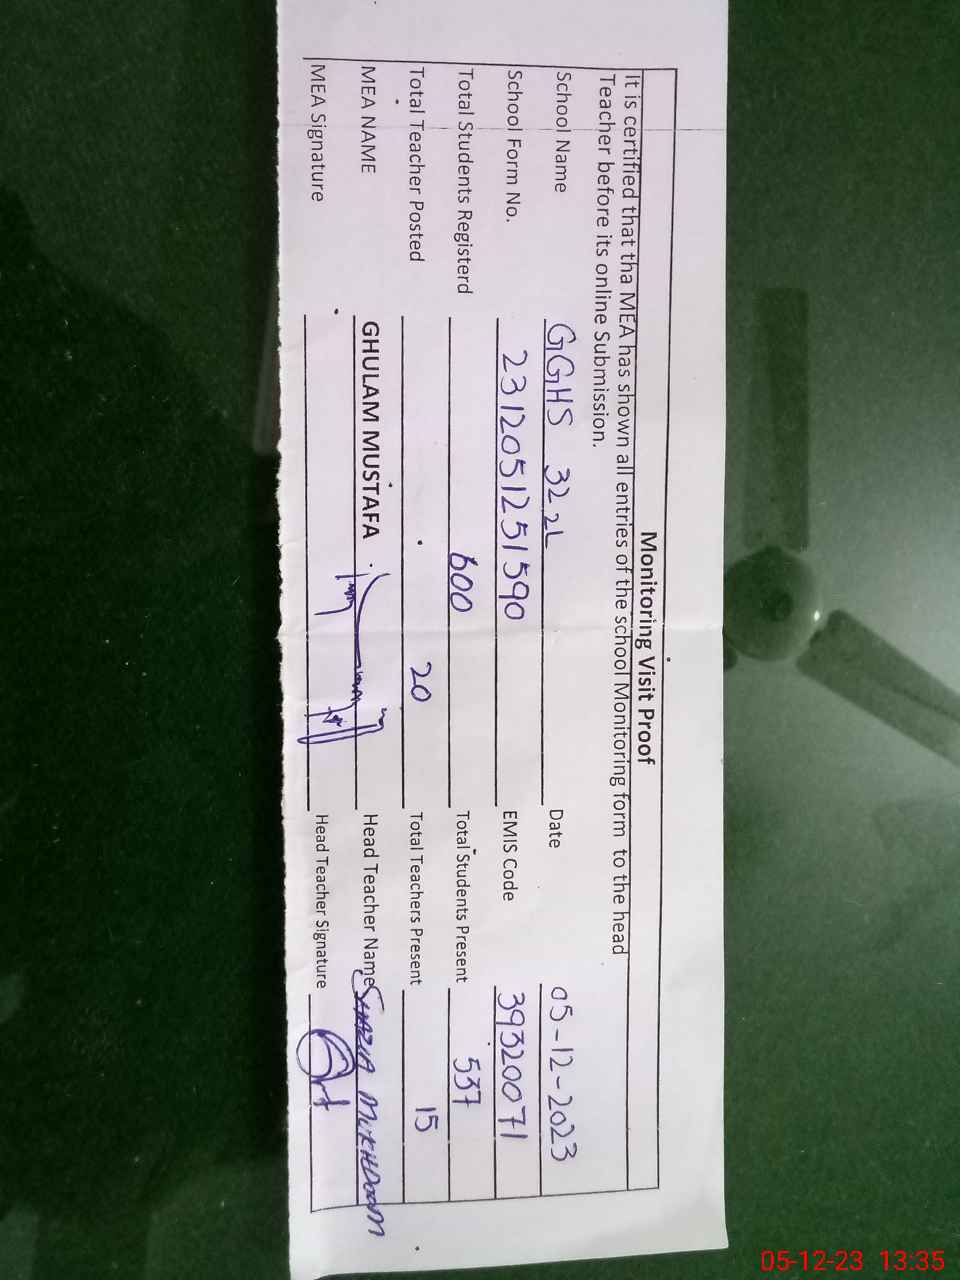 Monitoring Visit Proof
It is certified that tha MEA has shown all entries of the school Monitoring form to the head
Teacher before its online Submission.
School Name GGHS 32 2L Date 05-12-2023
School Form No. 2312051251590 EMIS Code 39320071
Total Students Registerd 600 Total Students Present 537
Total Teacher Posted 20 Total Teachers Present 15
MEA NAME GHULAM MUSTAFA Head Teacher Name SHAZIA MUKHDOOM
MEA Signature Head Teacher Signature
05-12-23 13:35